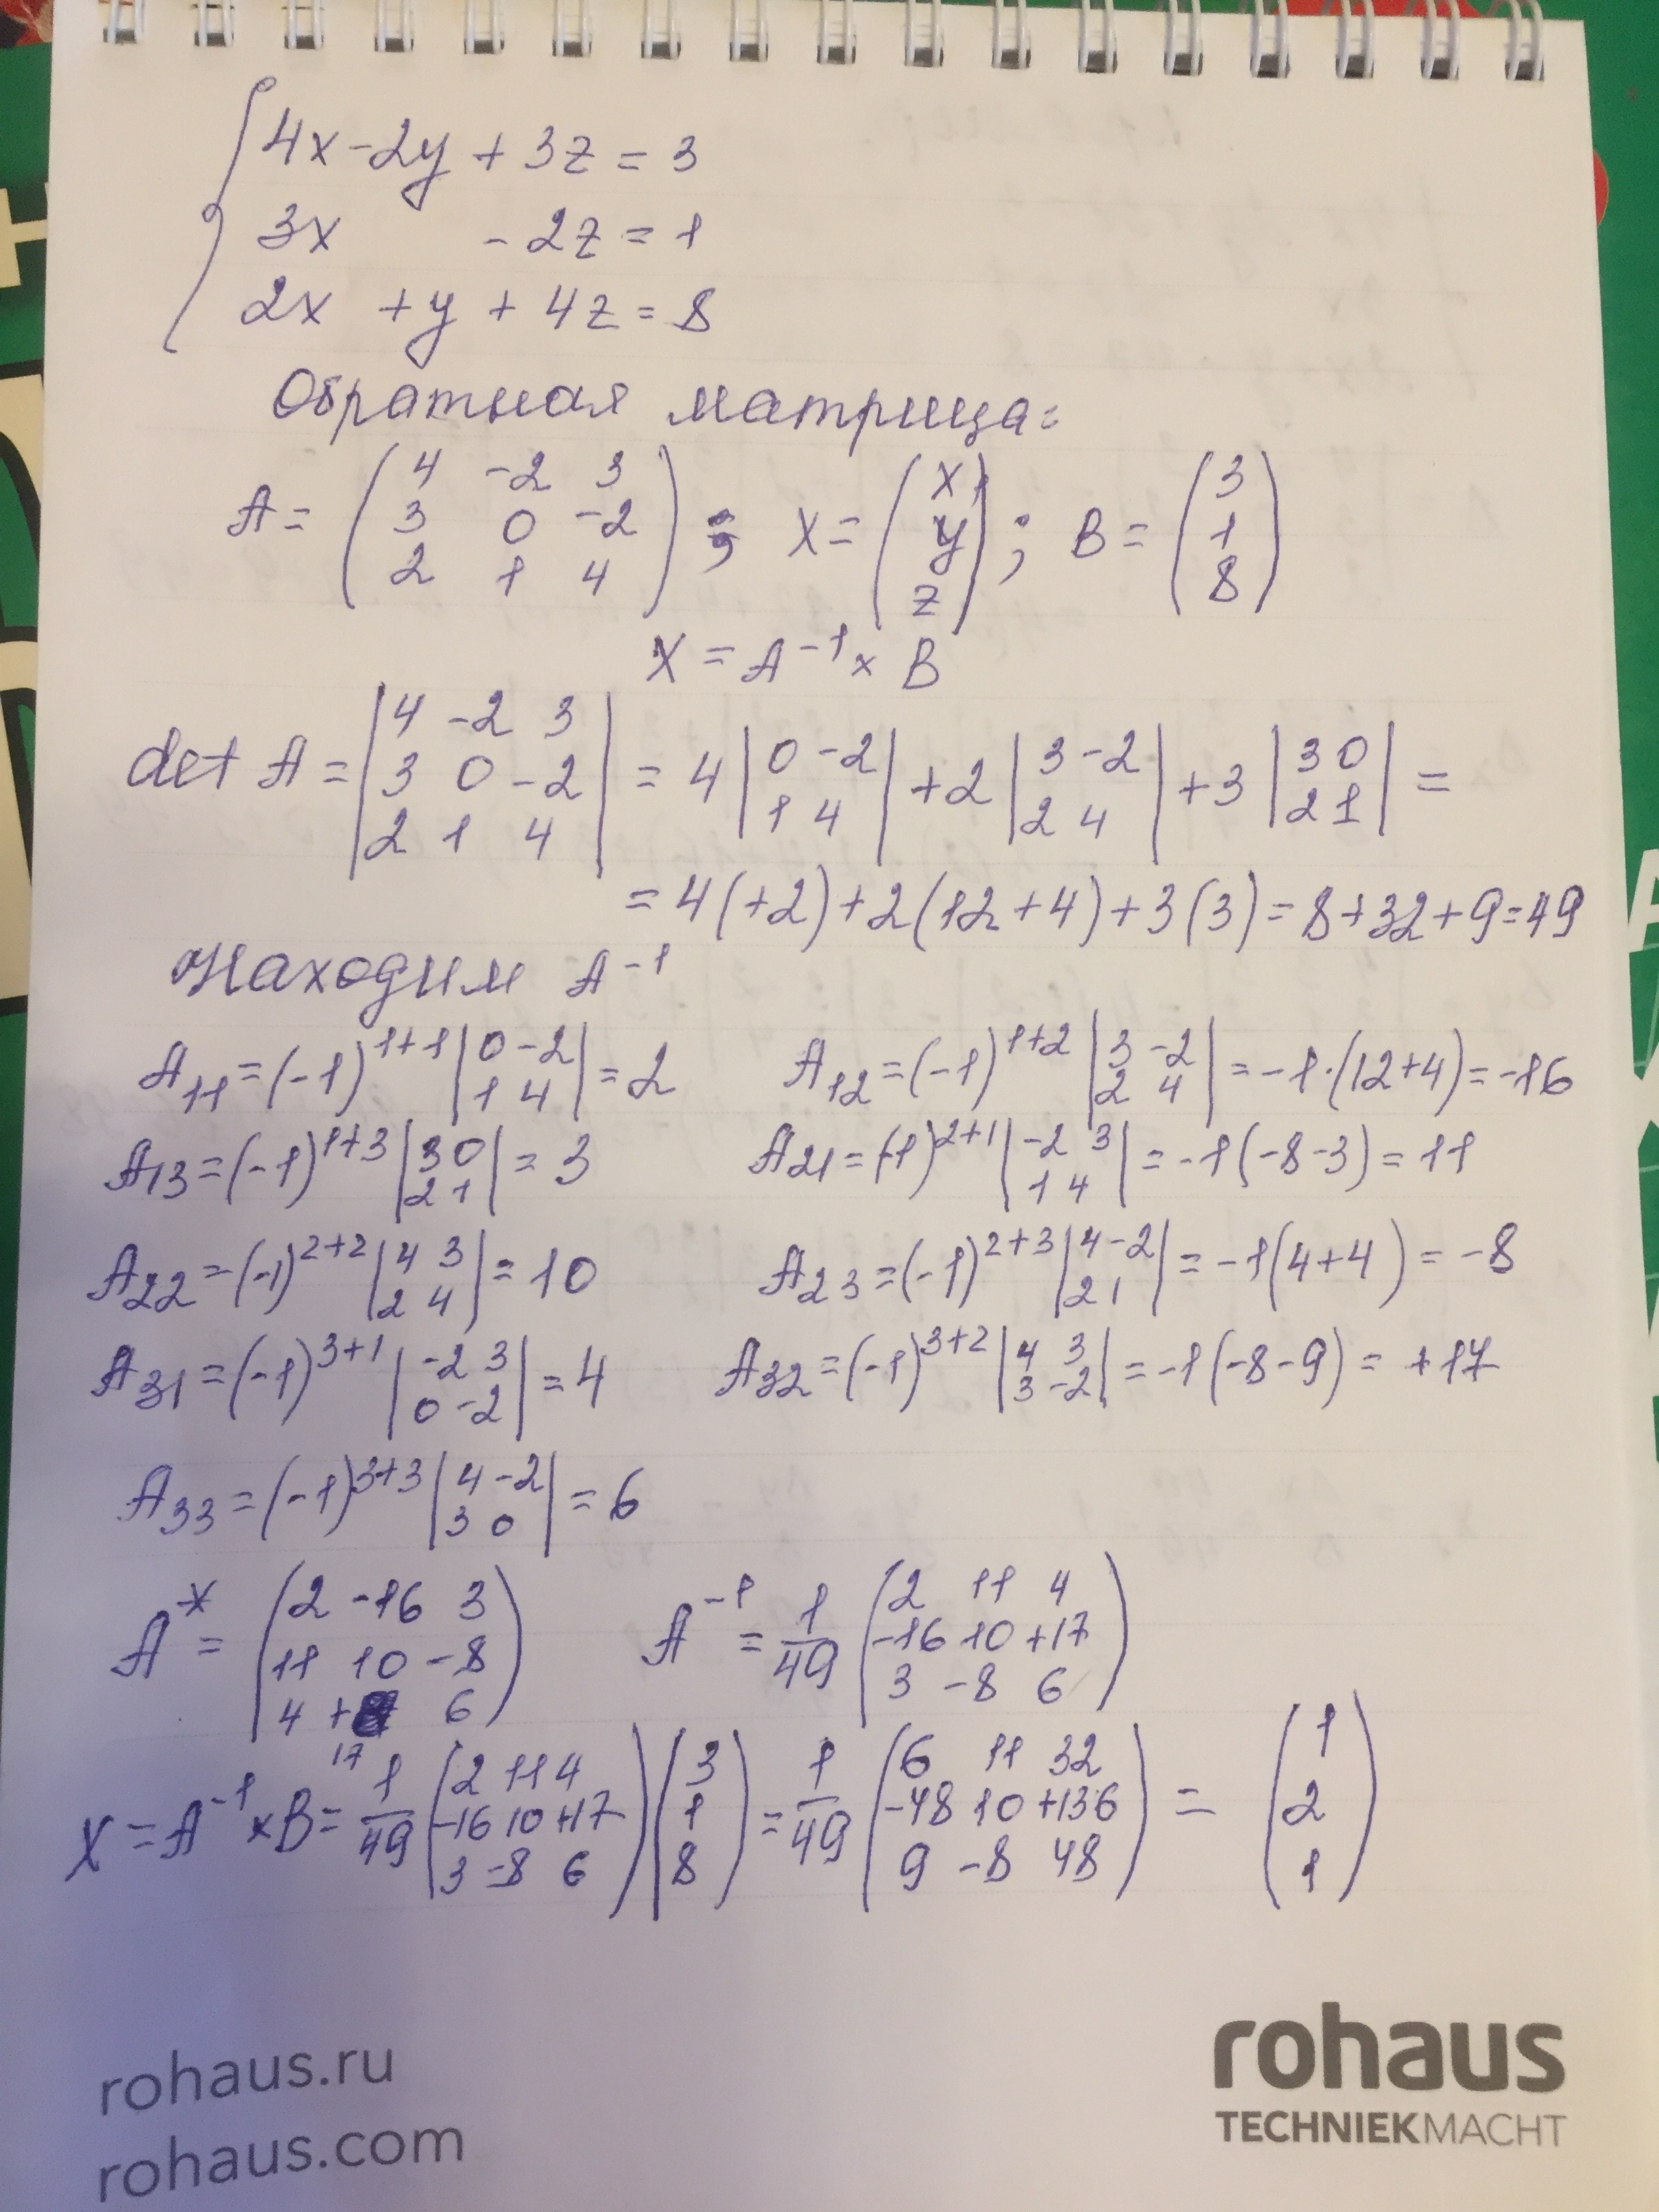 4x-2y+3z=3
3x -2z=1
2x+y+4z=8
Обратная матрица:
A= (4 -2 3
3 0 -2
2 1 4); X= (x
y
z); B= (3
1
8)
X=A⁻¹×B
det A= |4 -2 3
3 0 -2
2 1 4| = 4|0 -2
1 4| +2|3 -2
2 4| +3|3 0
2 1| =
=4(+2)+2(12+4)+3(3)=8+32+9=49
Находим A⁻¹
A₁₁=(-1)¹⁺¹|0 -2
1 4|=2
A₁₂=(-1)¹⁺²|3 -2
2 4|=-1·(12+4)=-16
A₁₃=(-1)¹⁺³|3 0
2 1|=3
A₂₁=(-1)²⁺¹|-2 3
1 4|=-1(-8-3)=11
A₂₂=(-1)²⁺²|4 3
2 4|=10
A₂₃=(-1)²⁺³|4 -2
2 1|=-1(4+4)=-8
A₃₁=(-1)³⁺¹|-2 3
0 -2|=4
A₃₂=(-1)³⁺²|4 3
3 -2|=-1(-8-9)=+17
A₃₃=(-1)³⁺³|4 -2
3 0|=6
A*= (2 -16 3
11 10 -8
4 +17 6)
A⁻¹=1/49 (2 11 4
-16 10 +17
3 -8 6)
X=A⁻¹×B=1/49 (2 11 4
-16 10 +17
3 -8 6)(3
1
8)=1/49 (6 11 32
-48 10 +136
9 -8 48)= (1
2
1)
rohaus.ru
rohaus.com
rohaus
TECHNIEKMACHT